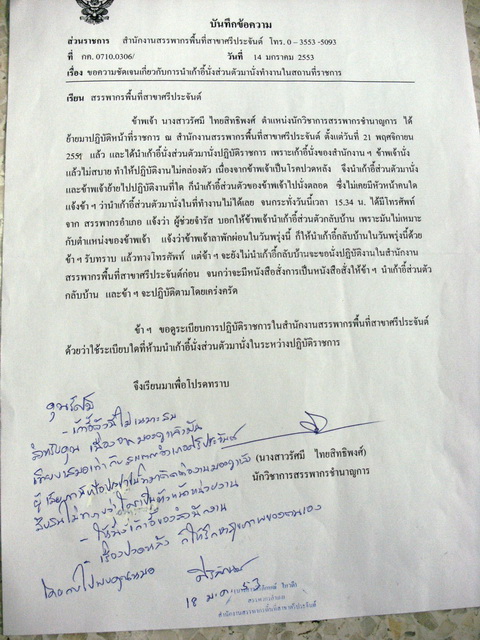 บันทึกข้อความ
ส่วนราชการ สำนักงานสรรพากรพื้นที่สาขาศรีประจันต์ โทร. 0 – 3553 -5093
ที่ กค. 0710.0306/ วันที่ 14 มกราคม 2553
เรื่อง ขอความชัดเจนเกี่ยวกับการนำเก้าอี้นั่งส่วนตัวมานั่งทำงานในสถานที่ราชการ
เรียน สรรพากรพื้นที่สาขาศรีประจันต์
ข้าพเจ้า นางสาวรัศมี ไทยสิทธิพงศ์ ตำแหน่งนักวิชาการสรรพากรชำนาญการ ได้
ย้ายมาปฏิบัติหน้าที่ราชการ ณ สำนักงานสรรพากรพื้นที่สาขาศรีประจันต์ ตั้งแต่วันที่ 21 พฤศจิกายน
แล้ว และได้นำเก้าอี้นั่งส่วนตัวมานั่งปฏิบัติราชการ เพราะเก้าอี้นั่งของสำนักงาน ฯ ข้าพเจ้านั่ง
แล้วไม่สบาย ทำให้ปฏิบัติงานไม่คล่องตัว เนื่องจากข้าพเจ้าเป็นโรคปวดหลัง จึงนำเก้าอี้ส่วนตัวมานั่ง
และข้าพเจ้าย้ายไปปฏิบัติงานที่ใด ก็นำเก้าอี้ส่วนตัวของข้าพเจ้าไปนั่งตลอด ซึ่งไม่เคยมีหัวหน้าคนใด
แจ้งข้า ฯ ว่านำเก้าอี้ส่วนตัวมานั่งในที่ทำงานไม่ได้เลย จนกระทั่งวันนี้เวลา 15.34 น. ได้มีโทรศัพท์
จาก สรรพากรอำเภอ แจ้งว่า ผู้ช่วยจำรัส บอกให้ข้าพเจ้านำเก้าอี้ส่วนตัวกลับบ้าน เพราะมันไม่เหมาะ
กับตำแหน่งของข้าพเจ้า แจ้งว่าข้าพเจ้าลาพักผ่อนในวันพรุ่งนี้ ก็ให้นำเก้าอี้กลับบ้านในวันพรุ่งนี้ด้วย
ข้า ฯ รับทราบ แล้วทางโทรศัพท์ แต่ข้า ฯ จะยังไม่นำเก้าอี้กลับบ้านจะขอนั่งปฏิบัติงานในสำนักงาน
สรรพากรพื้นที่สาขาศรีประจันต์ก่อน จนกว่าจะมีหนังสือสั่งการเป็นหนังสือสั่งให้ข้า ฯ นำเก้าอี้ส่วนตัว
กลับบ้าน และข้า ฯ จะปฏิบัติตามโดยเคร่งครัด
ข้า ฯ ขอดูระเบียบการปฏิบัติราชการในสำนักงานสรรพากรพื้นที่สาขาศรีประจันต์
ด้วยว่าใช้ระเบียบใดที่ห้ามนำเก้าอี้นั่งส่วนตัวมานั่งในระหว่างปฏิบัติราชการ
จึงเรียนมาเพื่อโปรดทราบ
คุณรัศมี
- เก้าอี้ตัวนี้ไม่เหมาะสม
สำหรับคุณ
(นางสาวรัศมี ไทยสิทธิพงศ์)
นักวิชาการสรรพากรชำนาญการ
- ให้นั่งเก้าอี้ของสำนักงาน
เรื่องปวดหลัง ก็ให้รักษาสุขภาพของตนเอง
18 ม.ค. 53
สรรพากรอำเภอ
สำนักงานสรรพากรพื้นที่สาขาศรีประจันต์